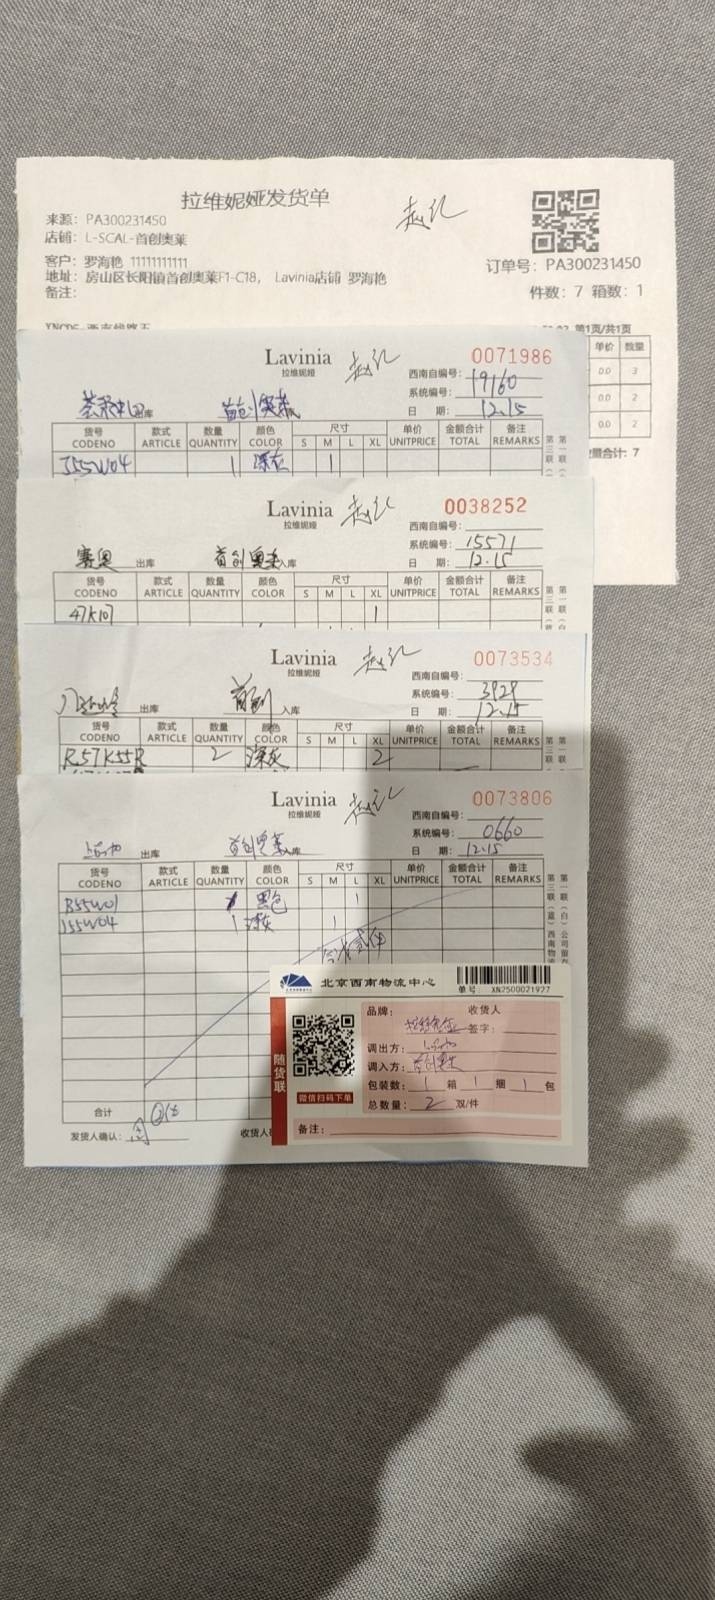 拉维妮娅发货单
来源: PA300231450
店铺: L-SCAL-首创奥莱
客户: 罗海艳 11111111111
地址: 房山区长阳镇首创奥莱F1-C18, Lavinia店铺 罗海艳
备注:
订单号: PA300231450
件数: 7 箱数: 1
第1页/共1页
单价 数量
0.0 3
0.0 2
0.0 2
数量合计: 7
Lavinia
拉维妮娅
0071986
西南自编号:
系统编号: 19160
日 期: 12.15
出库 首创奥莱
货号 款式 数量 颜色 尺寸 单价 金额合计 备注
CODENO ARTICLE QUANTITY COLOR S M L XL UNITPRICE TOTAL REMARKS
J55W04 1 深灰 1
Lavinia
拉维妮娅
0038252
西南自编号:
系统编号: 15571
日 期: 12.15
赛奥 出库 首创奥莱 入库
货号 款式 数量 颜色 尺寸 单价 金额合计 备注
CODENO ARTICLE QUANTITY COLOR S M L XL UNITPRICE TOTAL REMARKS
47K107 1
Lavinia
拉维妮娅
0073534
西南自编号:
系统编号: 3929
日 期: 12.15
出库 首创 入库
货号 款式 数量 颜色 尺寸 单价 金额合计 备注
CODENO ARTICLE QUANTITY COLOR S M L XL UNITPRICE TOTAL REMARKS
R57K55R 2 深灰 2
Lavinia
拉维妮娅
0073806
西南自编号:
系统编号: 0660
日 期: 12.15
出库 首创奥莱 入库
货号 款式 数量 颜色 尺寸 单价 金额合计 备注
CODENO ARTICLE QUANTITY COLOR S M L XL UNITPRICE TOTAL REMARKS
B55W01 1 黑色 1
J55W04 1 深灰 1
合计 ②件
发货人确认: 周
收货人确
北京西南物流中心
单号: XN2500021927
随货联
微信扫码下单
品牌: 收货人
签字:
调出方:
调入方: 首创奥莱
包装数: 1 箱 1 捆 1 包
总数量: 2 双/件
备注: